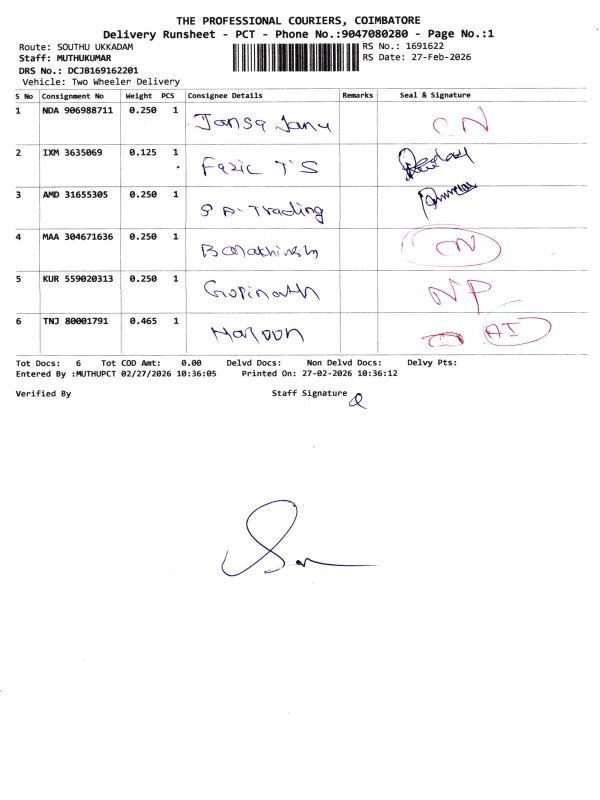 THE PROFESSIONAL COURIERS, COIMBATORE
Delivery Runsheet - PCT - Phone No.:9047080280 - Page No.:1
Route: SOUTHU UKKADAM RS No.: 1691622
Staff: MUTHUKUMAR RS Date: 27-Feb-2026
DRS No.: DCJB169162201
Vehicle: Two Wheeler Delivery
S No Consignment No Weight PCS Consignee Details Remarks Seal & Signature
1 NDA 906988711 0.250 1 Jansa Janu CN
2 IXM 3635069 0.125 1 Fazic T S
3 AMD 31655305 0.250 1 S A. Trading
4 MAA 304671636 0.250 1 CN
5 KUR 559020313 0.250 1 Gopinath NP
6 TNJ 80001791 0.465 1 Haroon AI
Tot Docs: 6 Tot COD Amt: 0.00 Delvd Docs: Non Delvd Docs: Delvy Pts:
Entered By :MUTHUPCT 02/27/2026 10:36:05 Printed On: 27-02-2026 10:36:12
Verified By Staff Signature